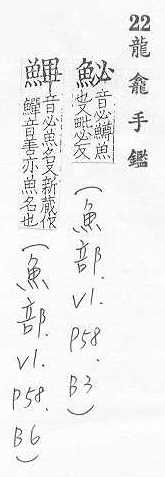 22 龍龕手鑑
鮅 音必鱒魚也又毗必反 (魚部. V1. P58. B3)
鰏 音必魚名又新藏作鱓音善亦魚名也 (魚部. V1. P58. B6)